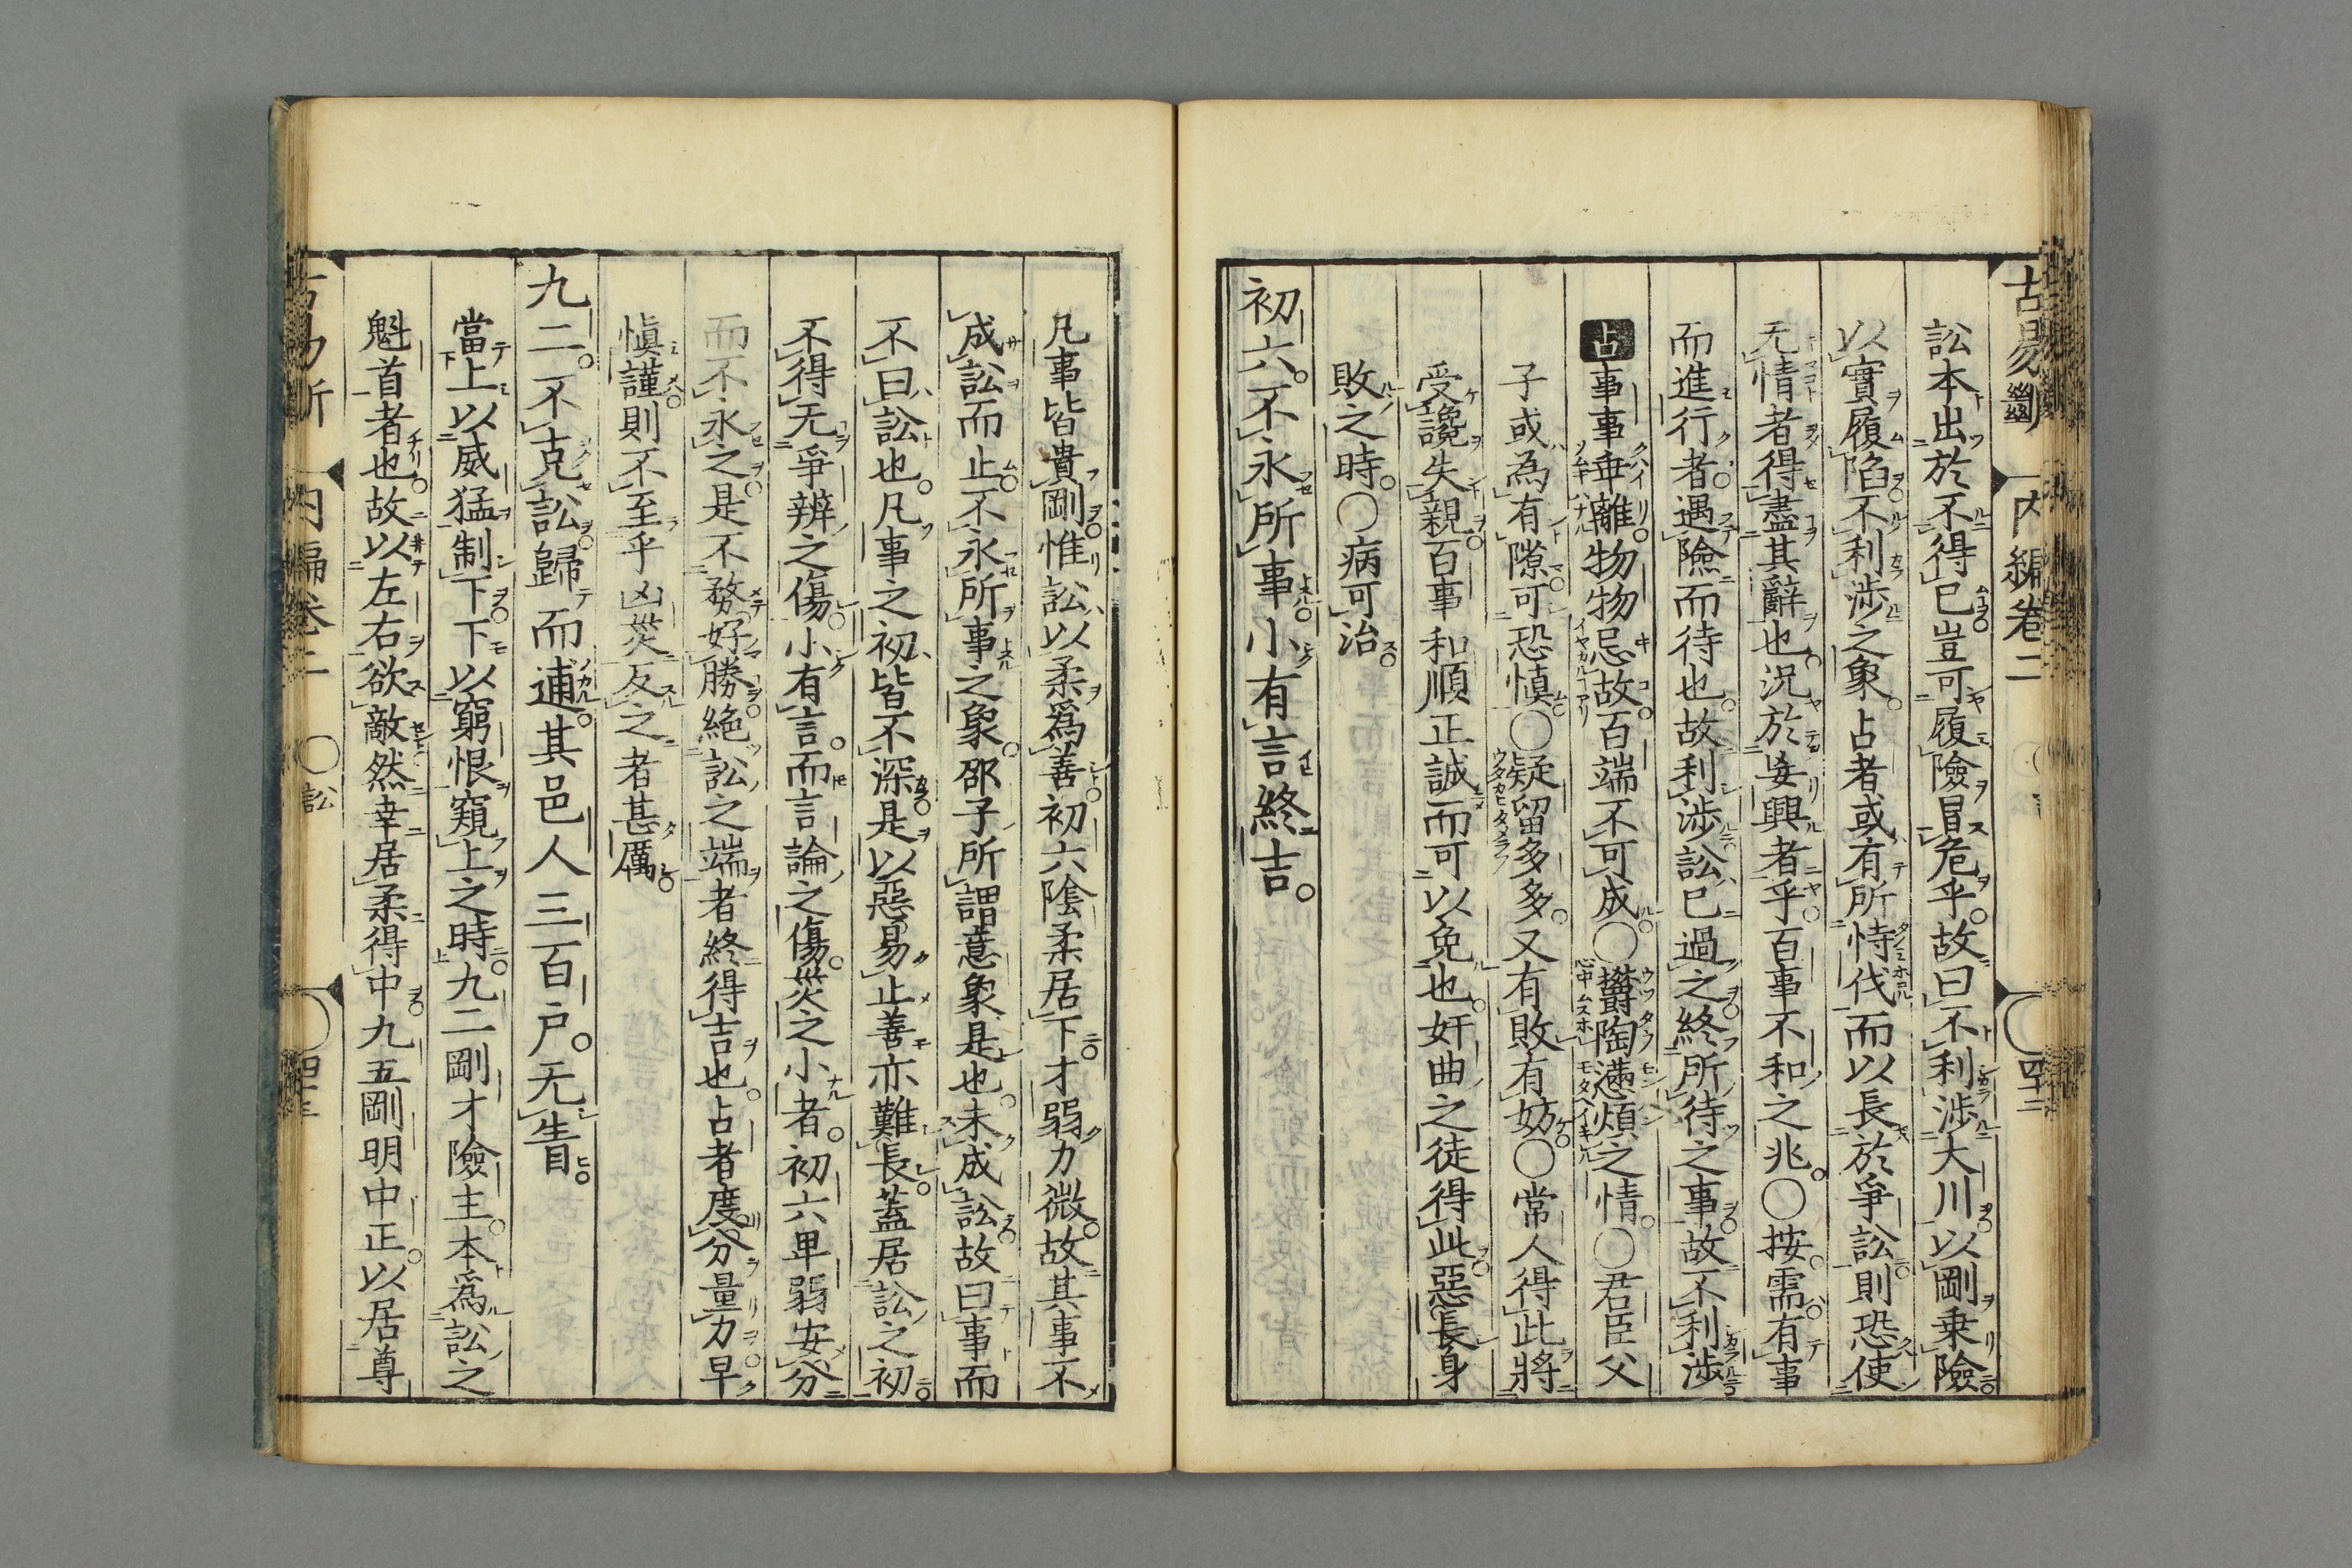 古易斷 内編卷二 四十二
訟本出於不得已豈可履險冒危乎故曰不利涉大川以剛乗險
以實履陷不利涉之象占者或有所恃伐而以長於爭訟則恐使
无情者得盡其辭也況於妄興者乎百事不和之兆○按需有事
而進行者遇險而待也故利涉訟已過之終所待之事故不利涉
占事事乖離物物忌故百端不可成○欝陶懣煩之情○君臣父
子或為有隙可恐慎○疑留多多又有敗有妨○常人得此將
受讒失親百事和順正誠而可以免也奸曲之徒得此惡長身
敗之時○病可治
初六不永所事小有言終吉
凡事皆貴剛惟訟以柔爲善初六陰柔居下才弱力微故其事不
成訟而止不永所事之象邵子所謂意象是也未成訟故曰事而
不曰訟也凡事之初皆不深是以惡易止善亦難長蓋居訟之初
不得无爭辨之傷小有言而言論之傷災之小者初六卑弱安分
而不永之是不務好勝絶訟之端者終得吉也占者度分量力早
愼謹則不至乎凶災反之者甚厲
九二不克訟歸而逋其邑人三百戸无眚
當上以威猛制下下以窮恨窺上之時九二剛才險主本爲訟之
魁首者也故以左右欲敵然幸居柔得中九五剛明中正以居尊
内編卷二 ○訟 四十三